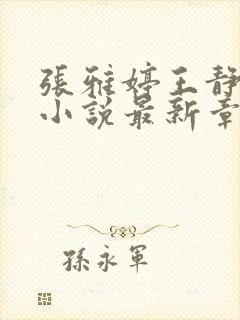 張雅婷王靜
小說最新章
孫永軍